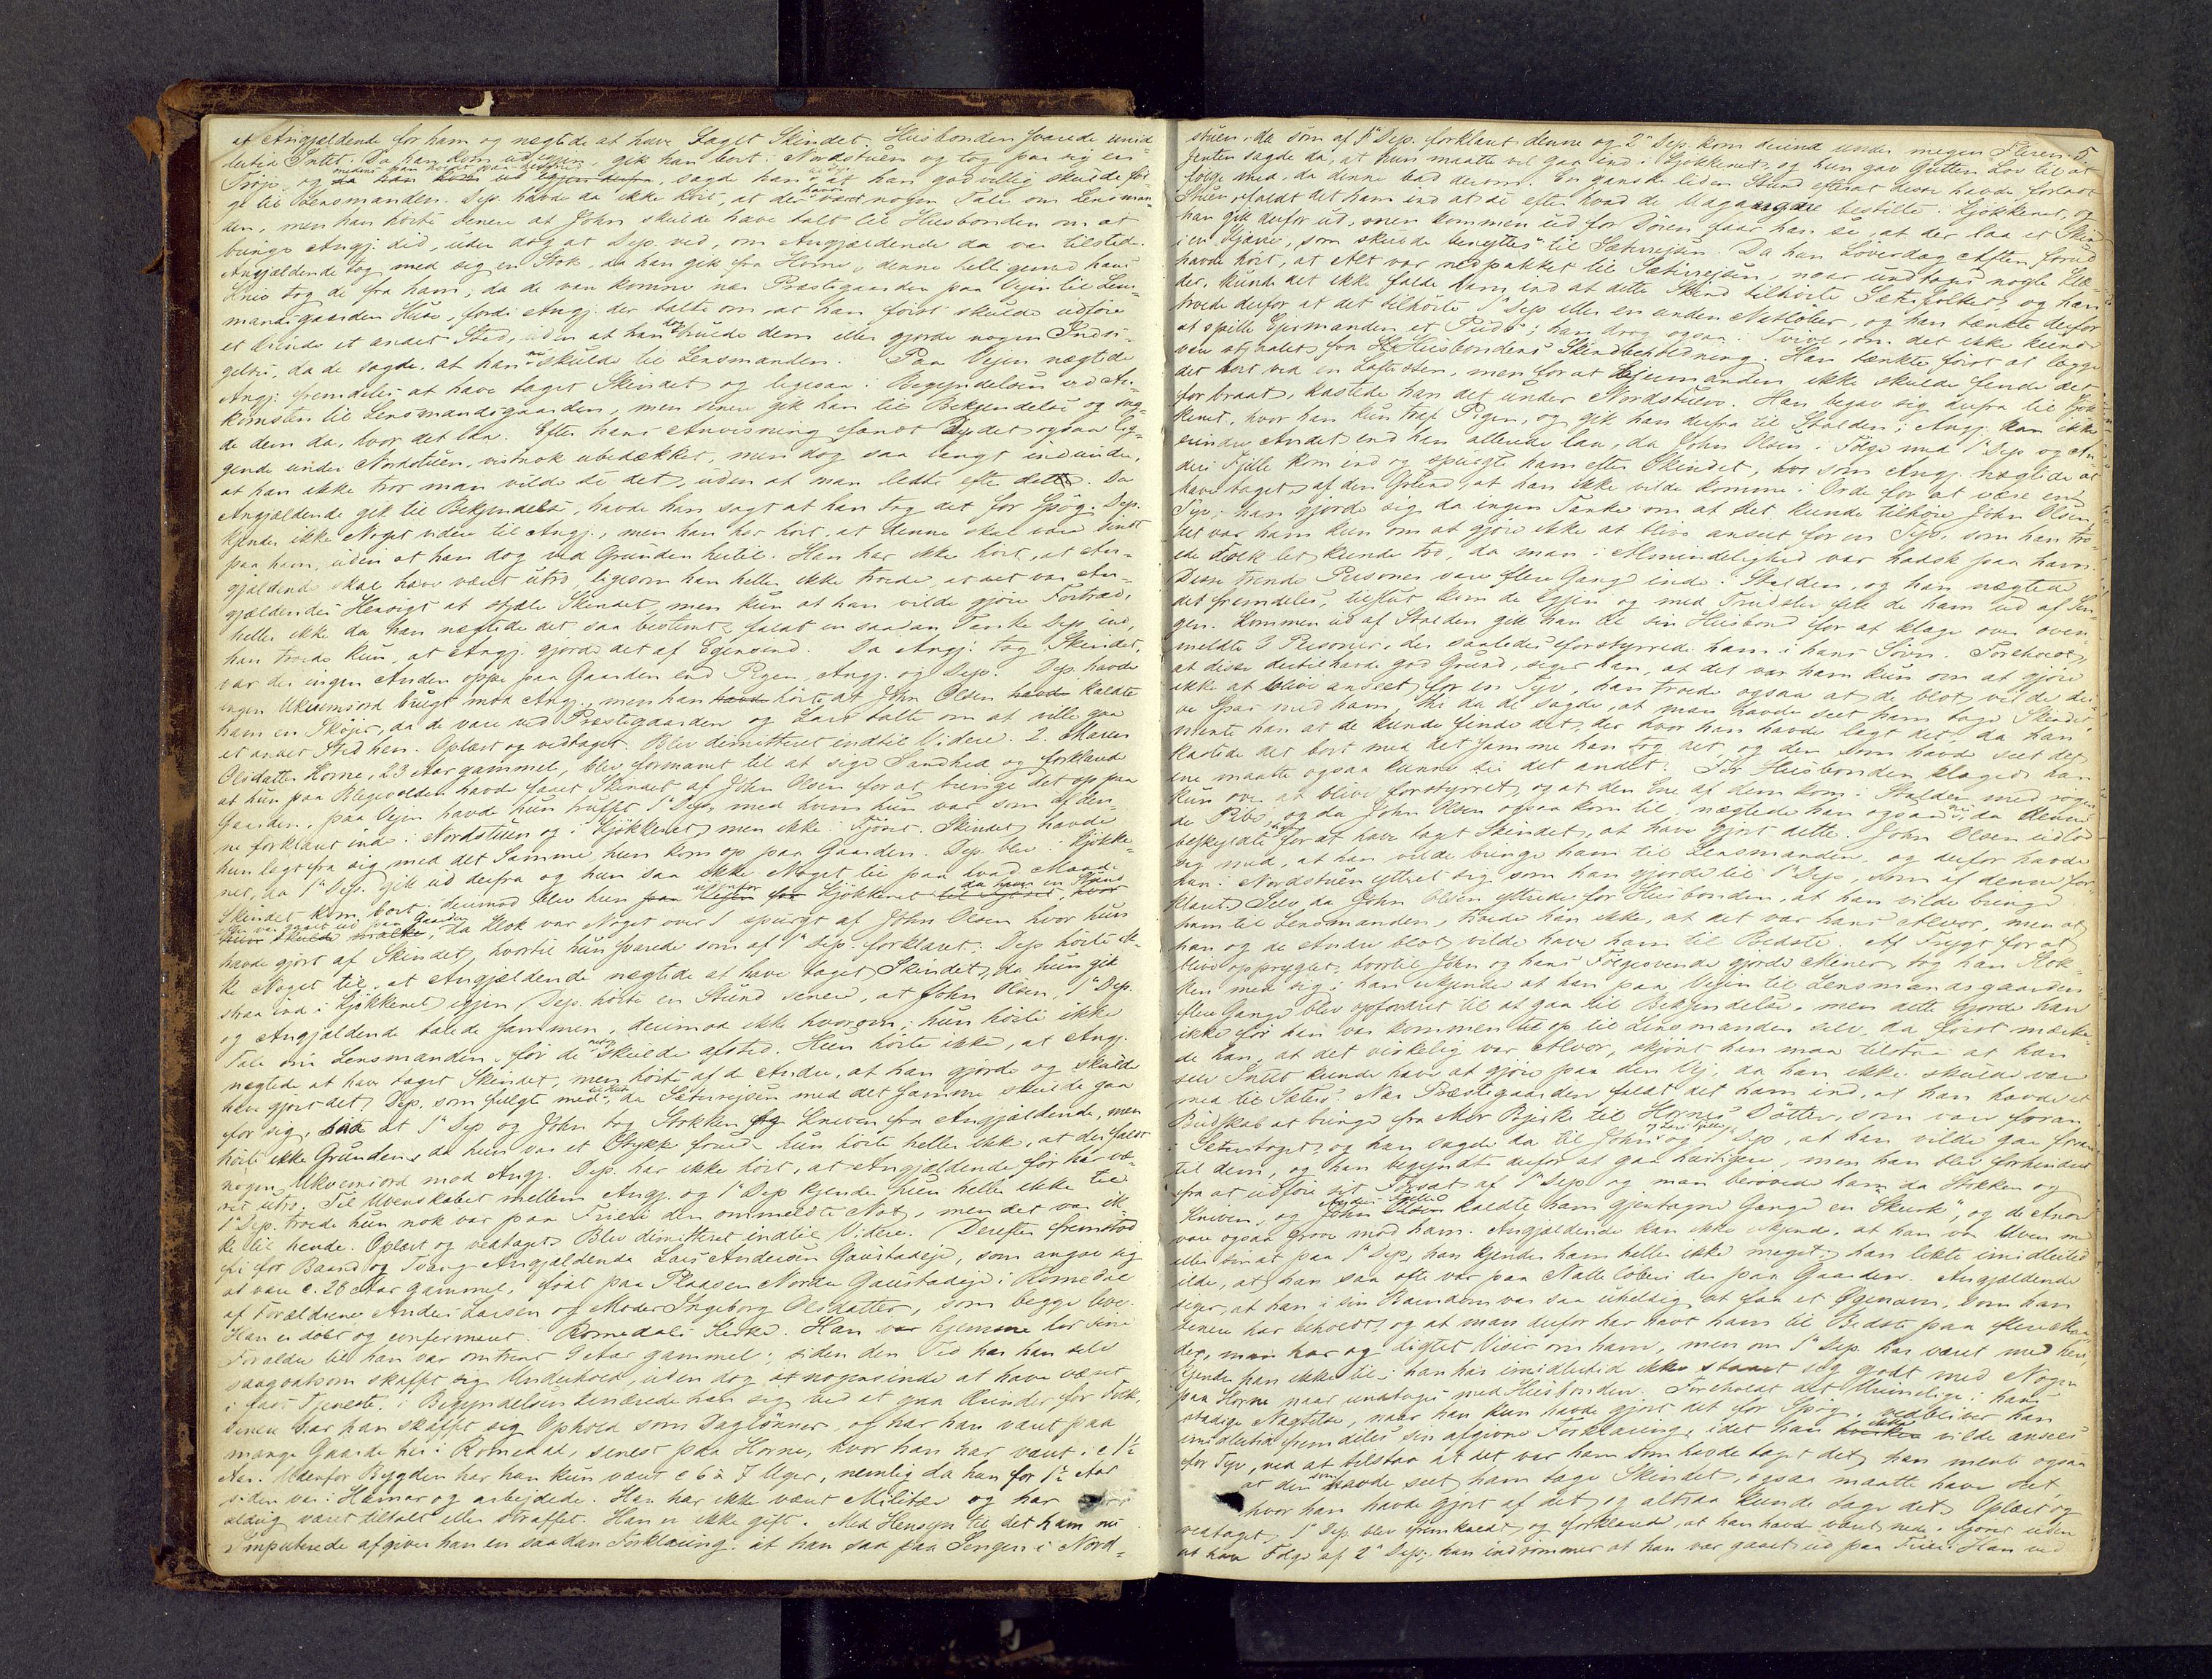 at Angjældende for ham og nægtede at have taget Skindet. Husbonden svarede imid-
lertid Intet. Da han kom ud igjen, gik han bort i Nordstuen og tog paa sig en
Trøje og da han kom ud igjen derfra, sagde han at han godvillig skulde føl-
ge til Lensmanden. Dep. havde da ikke hørt, at der havde været nogen Tale om Lensman-
den, men han hørte senere at John skulde have talt til Husbonden om at
bringe Angj. did, uden dog at Dep. ved, om Angjældende da var tilstede.
Angjældende tog med sig en Stok, da han gik fra Horne, denne tilligemed hans
Kniv tog de fra ham, da de vare komne nær Præstegaarden paa Vejen til Lens-
mandsgaarden Huse, fordi Angj. der talte om at han først skulde udføre
et Ærinde et andet Sted, uden at han dog truede dem eller gjorde nogen Indsi-
gelse, da de sagde, at han nu skulde til Lensmanden. Paa Vejen nægtede
Angj. fremdeles at have taget Skindet og ligesaa i Begyndelsen ved An-
komsten til Lensmandsgaarden, men senere gik han til Bekjendelse og sag-
de dem da, hvor det laa. Efter hans Anvisning fandt Dep. det ogsaa lig-
gende under Nordstuen, vistnok ubedækket, men dog saa langt indunder,
at han ikke tror man vilde se det, uden at man ledte efter det. Da
Angjældende gik til Bekjendelse, havde han sagt at han tog det for Spøg. Dep.
kjender ikke Noget videre til Angj., men han har hørt, at denne skal være vindt
paa ham, uden at han dog ved Grunden hertil. Han har ikke hørt, at An-
gjældende skal have været utro, ligesom han heller ikke troede, at det var An-
gjældendes Hensigt at stjæle Skindet, men kun at han vilde gjøre Fortræd,
heller ikke da han nægtede det saa bestemt, faldt en saadan Tanke Dep. ind,
han troede kun, at Angj. gjorde det af Egensind. Da Angj. tog Skindet,
var der ingen Anden oppe paa Gaarden end Pigen, Angj. og Dep. Dep. havde
ingen Ukvemsord brugt mod Angj., men han havde hørt at John Olsen havde kaldte
ham en Skøjer, da de vare ved Præstegaarden og Lars talte om at ville gaa
et andet Sted hen. Oplæst og vedtaget. Blev demitteret indtil Videre. 2. Maren
Olsdatter Horne, 23 Aar gammel, blev formanet til at sige Sandhed og forklarede
at hun paa Blegevolden havde faaet Skindet af John Olsen for at bringe det op paa
Gaarden, paa Vejen havde hun truffet 1ste Dep. med hvem hun var som af den-
ne forklaret inde i Nordstuen og i Kjøkkenet, men ikke i Fjøset. Skindet havde
hun lagt fra sig med det Samme hun kom op paa Gaarden. Dep. blev i Kjøkke-
net, da 1ste Dep. gik ud derfra og hun saa ikke Noget til paa hvad Maade
Skindet kom bort; derimod blev hun Kjøkkenet til Fjøset, hvor
hun skulde malke, da Klok var Noget over 1 spurgt af John Olsen hvor hun
havde gjort af Skindet, hvortil hun svarede som af 1ste Dep. forklaret. Dep. hørte ik-
ke Noget til, at Angjældende nægtede at have taget Skindet, da hun gik
strax ind i Kjøkkenet igjen. Dep. hørte en Stund senere, at John Olsen, 1ste Dep.
og Angjældende talede sammen, derimod ikke hvorom; hun hørte ikke
Tale om Lensmanden, før de netop skulde afsted. Hun hørte ikke, at Angj.
nægtede at have taget Skindet, men hørte af de Andre, at han gjorde og skulde
have gjort det. Dep. som fulgte med, da Sæterrejsen med det Samme skulde gaa
for sig, saa at 1ste Dep. og John tog Stokken og Kniven fra Angjældende, men
hørte ikke Grunden, da hun var et Stykke forud. Hun hørte heller ikke, at der faldt
nogen Ukvemsord mod Angj. Dep. har ikke hørt, at Angjældende før har væ-
ret utro. Til Uvenskabet mellem Angj. og 1ste Dep. kjender hun heller ikke til.
1ste Dep. troede hun nok var paa Frieri den ommeldte Nat, men det var ik-
ke til hende. Oplæst og vedtaget. Blev demitteret indtil Videre. Derefter fremstod
fri for Baand og Tvang Angjældende Lars Andersen Gaustadeje, som angav sig
at være c. 26 Aar gammel, født paa Pladsen Nordre Gaustadeje i Romedal
af Forældrene Anders Larsen og Moder Ingeborg Olsdatter, som begge leve.
Han er døbt og confirmeret i Romedals Kirke. Han var hjemme hos sine
Forældre til han var omtrent 9 Aar gammel; siden den Tid har han selv
saagodtsom skaffet sig Underhold, uden dog at nogensinde at have været
i fast Tjeneste. I Begyndelsen ernærede han sig ved at gaa Ærinder for Folk,
senere har han skaffet sig Ophold som Daglønner, og har han været paa
mange Gaarde her i Romedal, senest paa Horne, hvor han har været i c 1½
Aar. Udenfor Bygden har han kun været c 6 à 7 Uger, nemlig da han for 1½ Aar
siden var i Hamar og arbejdede. Han har ikke været Militær og har
aldrig været tiltalt eller straffet. Han er ikke gift. Med Hensyn til det ham nu
Imputerede afgiver han en saadan Forklaring: at han laa paa Sengen i Nord-
5.
stuen, da som af 1ste Dep. forklaret denne og 2den Dep. kom derind under megen Fliren.
Jenten sagde da, at hun maatte vel gaa ind i Kjøkkenet, og hun gav Gutten Lov til at
følge med, da denne bad derom. En ganske liden Stund efterat disse havde forladt
Stuen, faldt det ham ind at se efter hvad de bestilte i Kjøkkenet, og
han gik derfor ud, men kommen ud for Døren faar han se, at der laa et Skind
i en Kjærre, som skulde benyttes til Sæterrejsen. Da han Løverdag Aften forud
havde hørt, at Alt var nedpakket til Sæterrejsen, naar undtages nogle Klæ-
der, kunde det ikke falde ham ind at dette Skind tilhørte Sæterfolket, og han
troede derfor at det tilhørte 1ste Dep. eller en anden Natløber, og han tænkte derfor
at spille Ejermanden et Puds; han drog ogsaa i Tvivl, om det ikke kunde
være stjaalet fra Husbondens Skindbeholdning. Han tænkte først at lægge
det bort ved en Loftssten, men for at Ejermanden ikke skulde finde det
for braat, kastede han det under Nordstuen. Han begav sig derfra til Kjøk-
kenet, hvor han kun traf Pigen, og gik han derfra til Stalden; Angj. kan ikke
erindre Andet end han allerede laa, da John Olsen i Følge med 1ste Dep. og An-
ders Fjelle kom ind og spurgte ham efter Skindet, som Angj. nægtede at
have taget, af den Grund, at han ikke vilde komme i Orde for at være en
Tyv; han gjorde sig da ingen Tanke om at det kunde tilhøre John Olsen,
det var ham kun om at gjøre ikke at blive anseet for en Tyv, som han tro-
ede Folk let kunde tro, da man i Almindelighed var hadsk paa ham.
Disse trende Personer vare flere Gange inde i Stalden, og han nægtede
det fremdeles, tilsidst kom de igjen og med Trudsler fik de ham ud af Sen-
gen. Kommen ud af Stalden gik han til sin Husbond for at klage over oven-
meldte 3 Personer, der saaledes forstyrrede ham i hans Søvn. Foreholdt,
at disse dertil havde god Grund, siger han, at det var ham kun om at gjøre
ikke at blive anseet for en Tyv, han troede ogsaa at de blot vilde dri-
ve Spas med ham, thi da de sagde, at man havde seet ham tage Skindet,
mente han at de kunde finde det, der hvor han havde lagt det, da han
kastede det bort med det Samme han tog det, og den som havde seet det
ene maatte ogsaa kunne see det andet. For Husbonden klagede han
kun over at blive forstyrret, og at den Ene af dem kom i Stalden med røgen-
de Pibe, og da John Olsen ogsaa kom til, nægtede han ogsaa nu, da denne
beskyldte ham for at have taget Skindet, at have gjort dette. John Olsen udlod
sig med, at han vilde bringe ham til Lensmanden, og derfor havde
han i Nordstuen yttret sig som han gjorde til 1ste Dep., som af denne for-
klaret. Selv da John Olsen yttrede for Husbonden, at han vilde bringe
ham til Lensmanden, troede han ikke, at det var hans Alvor, men at
han og de Andre blot vilde have ham til Bedste. Af Frygt for at
blive oprygget, hvortil John og hans Følgesvende gjorde Miner, tog han Stok-
ken med sig; han erkjender at han paa Vejen til Lensmandsgaarden
flere Gange blev opfordret til at gaa til Bekjendelse, men dette gjorde han
ikke før han var kommen op til Lensmanden selv, da først mærke-
de han, at det virkelig var Alvor, skjønt han maa tilstaa at han
selv Intet kunde have at gjøre paa den Vej, da han ikke skulde være
med til Sæters. Nær Præstegaarden faldt det ham ind, at han havde et
Budskab at bringe fra Mor Bjerk til Hornes Døttre, som vare foran
i Sætertoget, og han sagde da til John og 1ste Dep., at han vilde gaa frem
til dem, og han begyndte derfor at gaa hurtigere, men han blev forhindret
fra at udføre sit Forsæt af 1ste Dep. og man berøvede ham da Stokken og
Kniven, og John Olsen kaldte ham gjentagne Gange en "Skurk", og de Andre
vare ogsaa grove mod ham. Angjældende kan ikke erkjende, at han var Uven med
eller sint paa 1ste Dep., han kjender ham heller ikke meget; han likte imidlertid
ilde, at han saa ofte var paa Natteløberi der paa Gaarden. Angjældende
siger, at han i sin Barndom var saa uheldig at faa et Øgenavn, som han
senere har beholdt, og at man derfor har havt ham til Bedste paa flere Maa-
der, man har og digtet Viser om ham, men om 1ste Dep. har været med heri,
kjender han ikke til; han har imidlertid ikke staaet sig godt med Nogen
paa Horne naar undtages med Husbonden. Foreholdt det Urimelige i hans
stadige Nægtelse, naar han kun havde gjort det for Spøg, vedbliver han
imidlertid fremdeles sin afgivne Forklaring, idet han ikke vilde ansees
for Tyv, ved at tilstaa at det var ham som havde taget det; han mente ogsaa
at den som havde seet ham tage Skindet, ogsaa maatte have seet,
hvor han havde gjort af det, og altsaa kunde tage det. Oplæst og
vedtaget. 1ste Dep. blev fremkaldt, og forklarede, at han havde været nede i Fjøset uden
at have Følge af 2den Dep.; han indrømmer at han var gaaet ud paa Frieri. Han ved